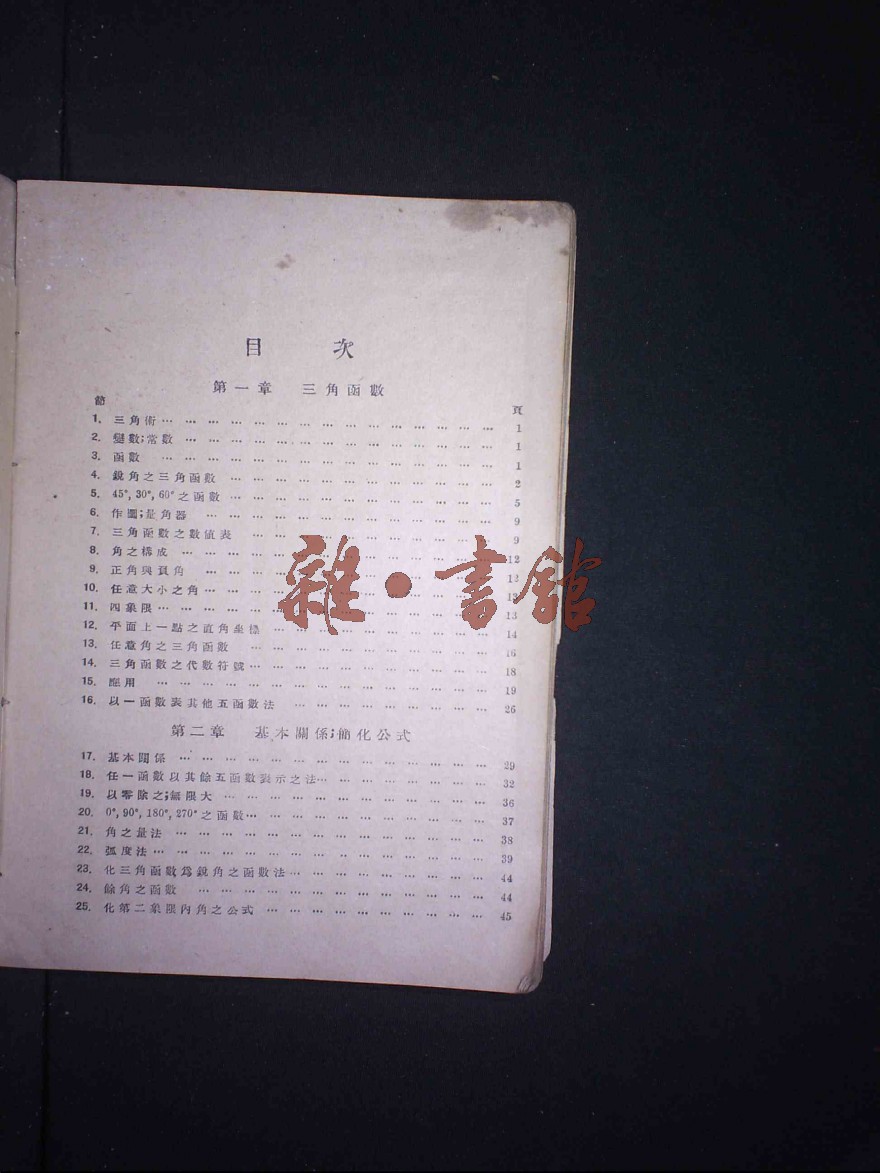 目 次
第一章 三角函數
節 頁
1. 三角術 … … … … … … … … … … … … … … … 1
2. 變數;常數 … … … … … … … … … … … … … … 1
3. 函數 … … … … … … … … … … … … … … … 1
4. 銳角之三角函數 … … … … … … … … … … … … 2
5. 45°, 30°, 60° 之函數 … … … … … … … … … … … … 5
6. 作圖;量角器 … … … … … … … … … … … … … 9
7. 三角函數之數值表 … … … … … … … … … … … 9
8. 角之構成 … … … … … … … … … … … … … … 12
9. 正角與負角 … … … … … … … … … … … … … 12
10. 任意大小之角 … … … … … … … … … … … … 13
11. 四象限 … … … … … … … … … … … … … … … 13
12. 平面上一點之直角坐標 … … … … … … … … … … 14
13. 任意角之三角函數 … … … … … … … … … … … … 16
14. 三角函數之代數符號 … … … … … … … … … … … 18
15. 應用 … … … … … … … … … … … … … … … 19
16. 以一函數表其他五函數法 … … … … … … … … … 26
第二章 基本關係;簡化公式
17. 基本關係 … … … … … … … … … … … … … … 29
18. 任一函數以其餘五函數表示之法 … … … … … … … … 32
19. 以零除之;無限大 … … … … … … … … … … … … 36
20. 0°, 90°, 180°, 270° 之函數 … … … … … … … … … … … 37
21. 角之量法 … … … … … … … … … … … … … … 38
22. 弧度法 … … … … … … … … … … … … … … … 39
23. 化三角函數爲銳角之函數法 … … … … … … … … … 44
24. 餘角之函數 … … … … … … … … … … … … … 44
25. 化第二象限內角之公式 … … … … … … … … … … 45
雜·書館